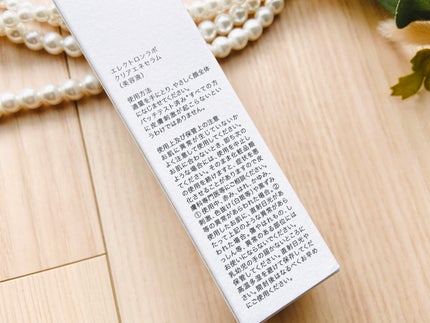 エレクトロンラボ
クリアエネセラム
(美容液)
使用方法
適量を手にとり、やさしく顔全体
になじませてください。
パッチテスト済み*すべての方
に皮膚刺激が起こらないとい
うわけではありません。
使用上及び保管上の注意
お肌に異常が生じていないか
よく注意して使用してください。
お肌に合わないとき、即ち次の
ような場合には、使用を中止し
てください。そのまま化粧品類
の使用を続けますと、症状を悪
化させることがありますので皮
膚科専門医等にご相談ください。
①使用中、赤み、はれ、かゆみ、
刺激、色抜け(白斑等)や黒ずみ
等の異常があらわれた場合。②
使用したお肌に、直射日光があ
たって上記のような異常があら
われた場合。傷やはれもの、し
っしん等、異常のある部位には
お使いにならないでください。
乳幼児の手の届かないところに
保管してください。直射日光や
高温多湿を避けて保存してくだ
さい。開封後はなるべくお早め
にご使用ください。